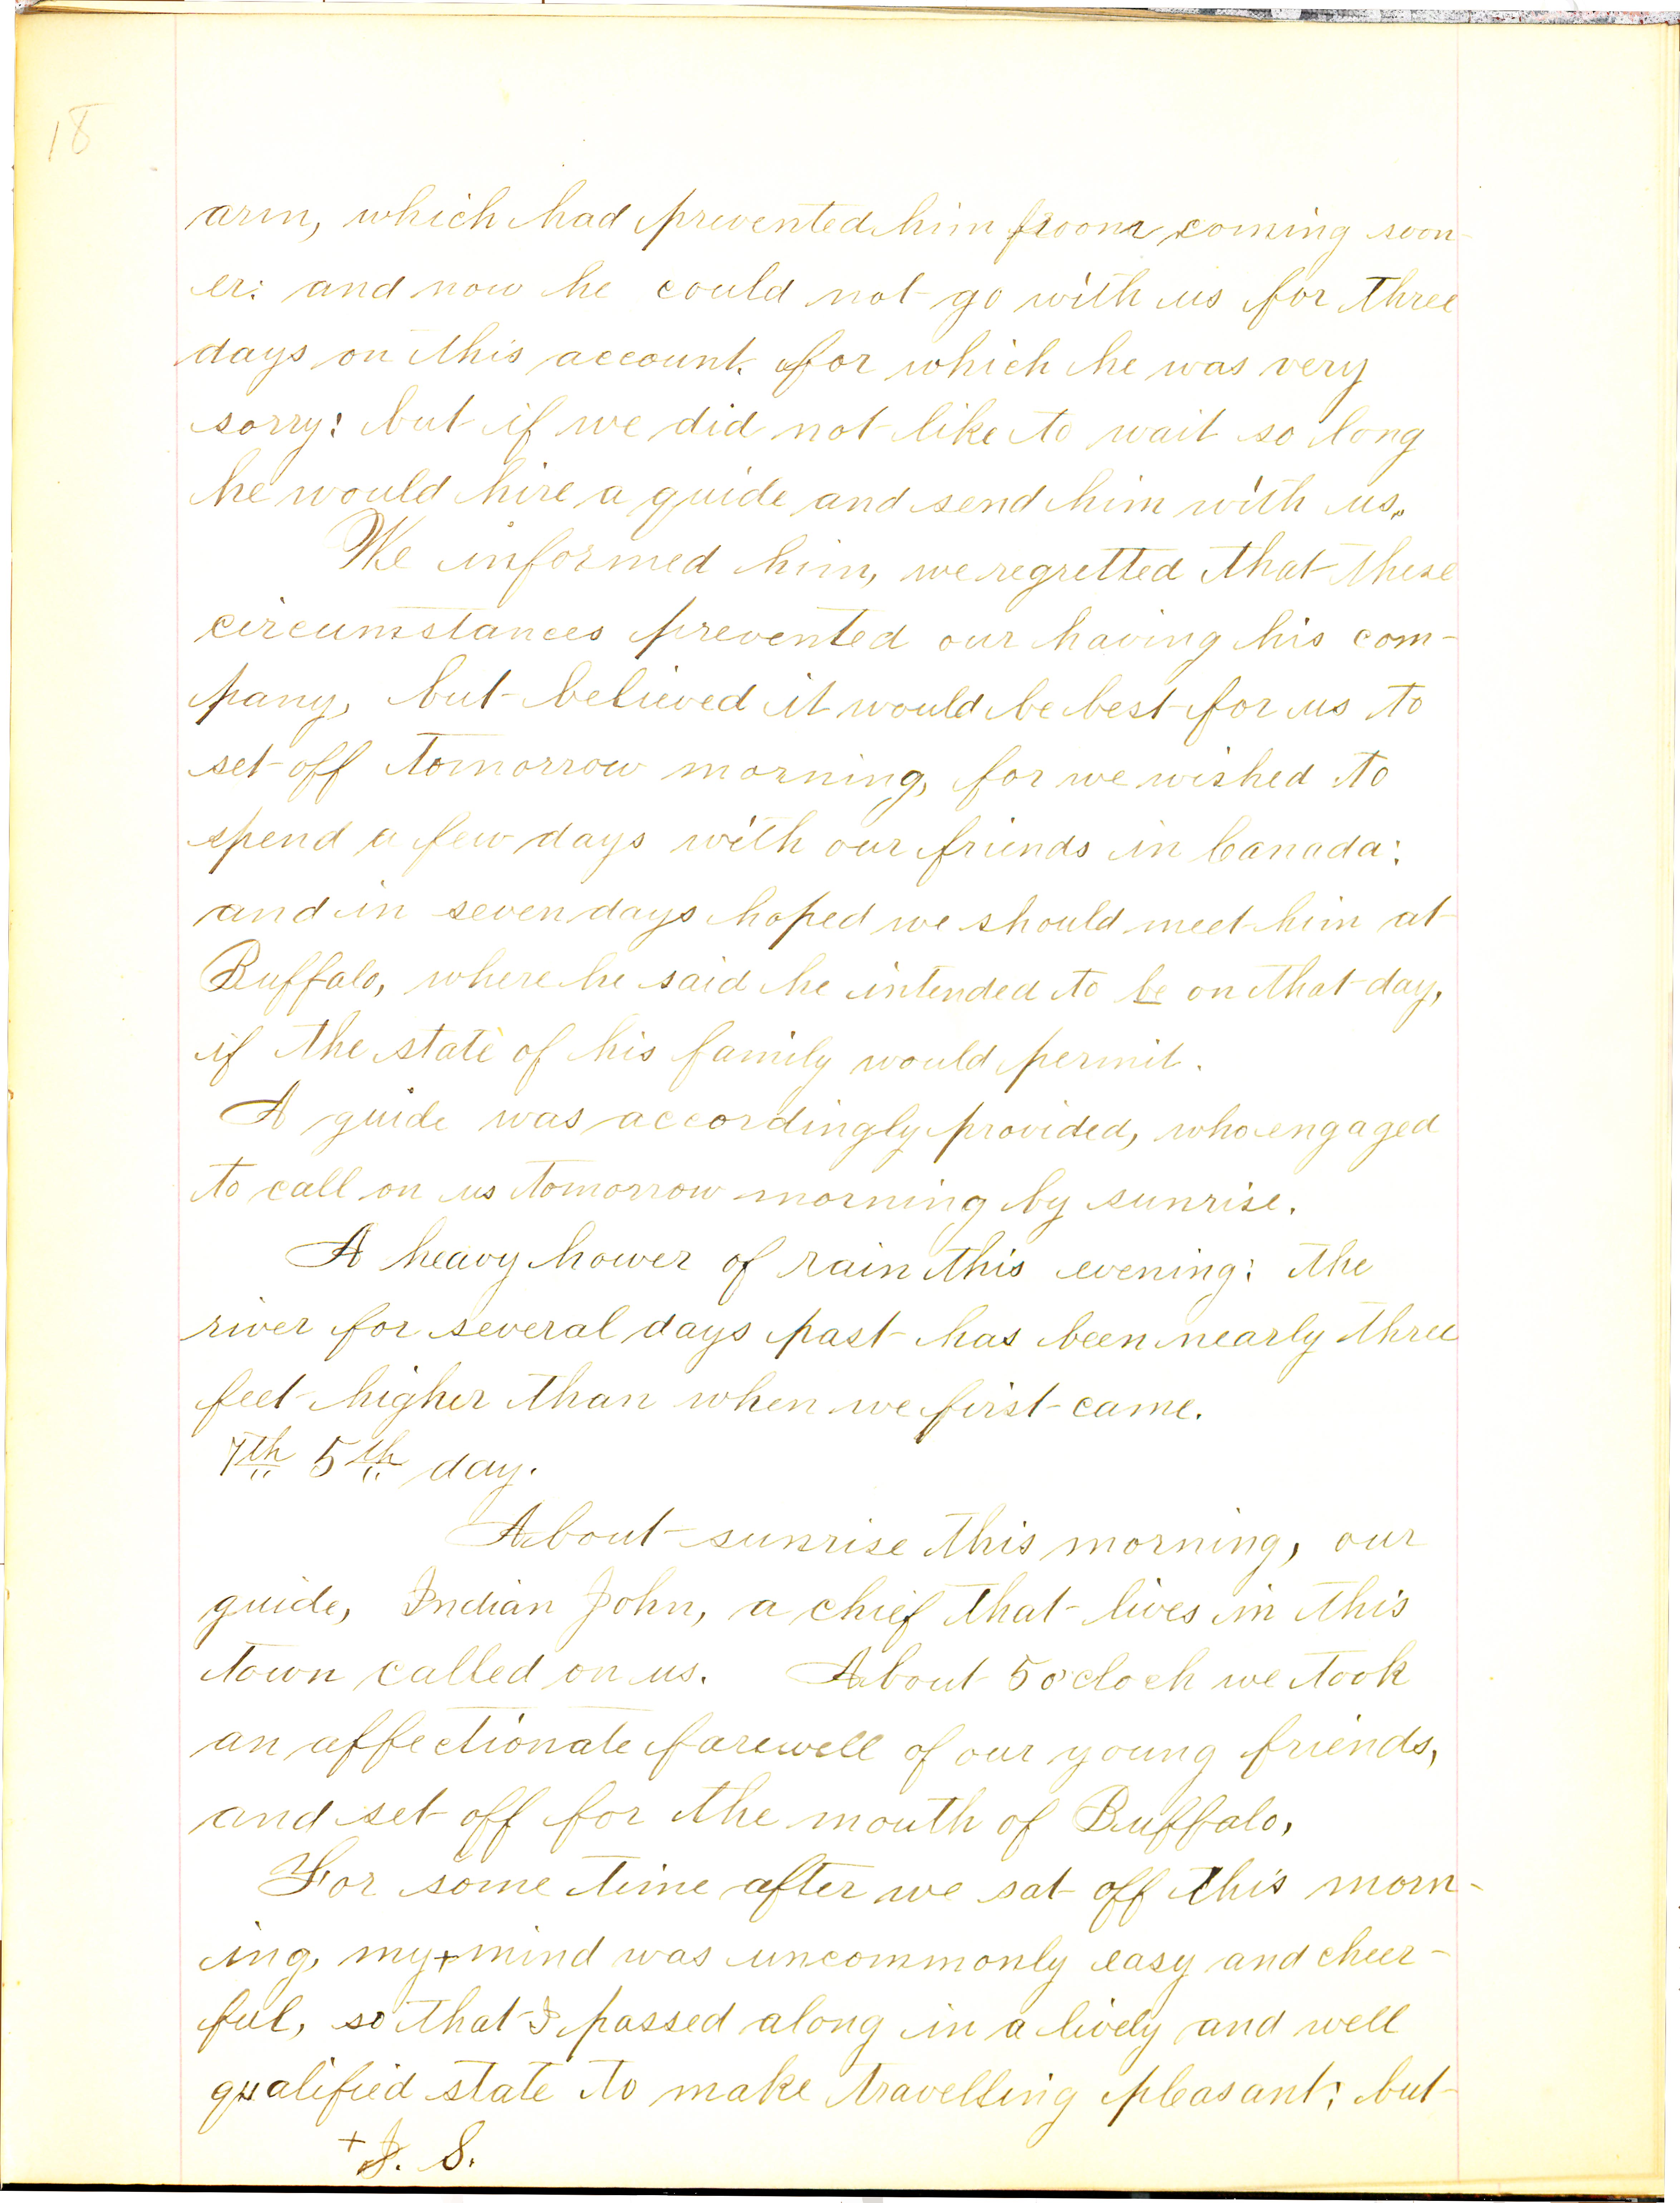 18
arm, which had prevented him from coming soon-
er: and now he could not go with us for three
days on this account. for which he was very
sorry: but if we did not like to wait so long
he would hire a guide and send him with us.
We informed him, we regretted that these
circumstances prevented our having his com-
pany, but believed it would be best for us to
set off tomorrow morning, for we wished to
spend a few days with our friends in Canada:
and in seven days hoped we should meet him at
Buffalo, where he said he intended to be on that day,
if the state of his family would permit.
A guide was accordingly provided, who engaged
to call on us tomorrow morning by sunrise.
A heavy hower of rain this evening: the
river for several days past has been nearly three
feet higher than when we first came.
7th 5th day.
About sunrise this morning, our
guide, Indian John, a chief that lives in this
town called on us. About 5 o'cloch we took
an affectionate farewell of our young friends,
and set off for the mouth of Buffalo,
For some time after we sat off this morn-
ing, my + mind was uncommonly easy and cheer-
ful, so that I passed along in a lively and well
qualified state to make travelling pleasant; but
+ J. S.